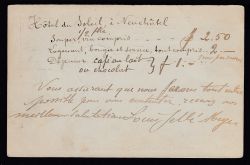 Hôtel du Soleil, à Neuchâtel
Souper, vin compris f 2.50
Logement, bougie et service, tout compris 2 —
Déjeuner café au lait } f 1. —
ou chocolat
Vous assurant que nous ferons tout notre
possible pour vous contenter, recevez nos
meilleures salutations